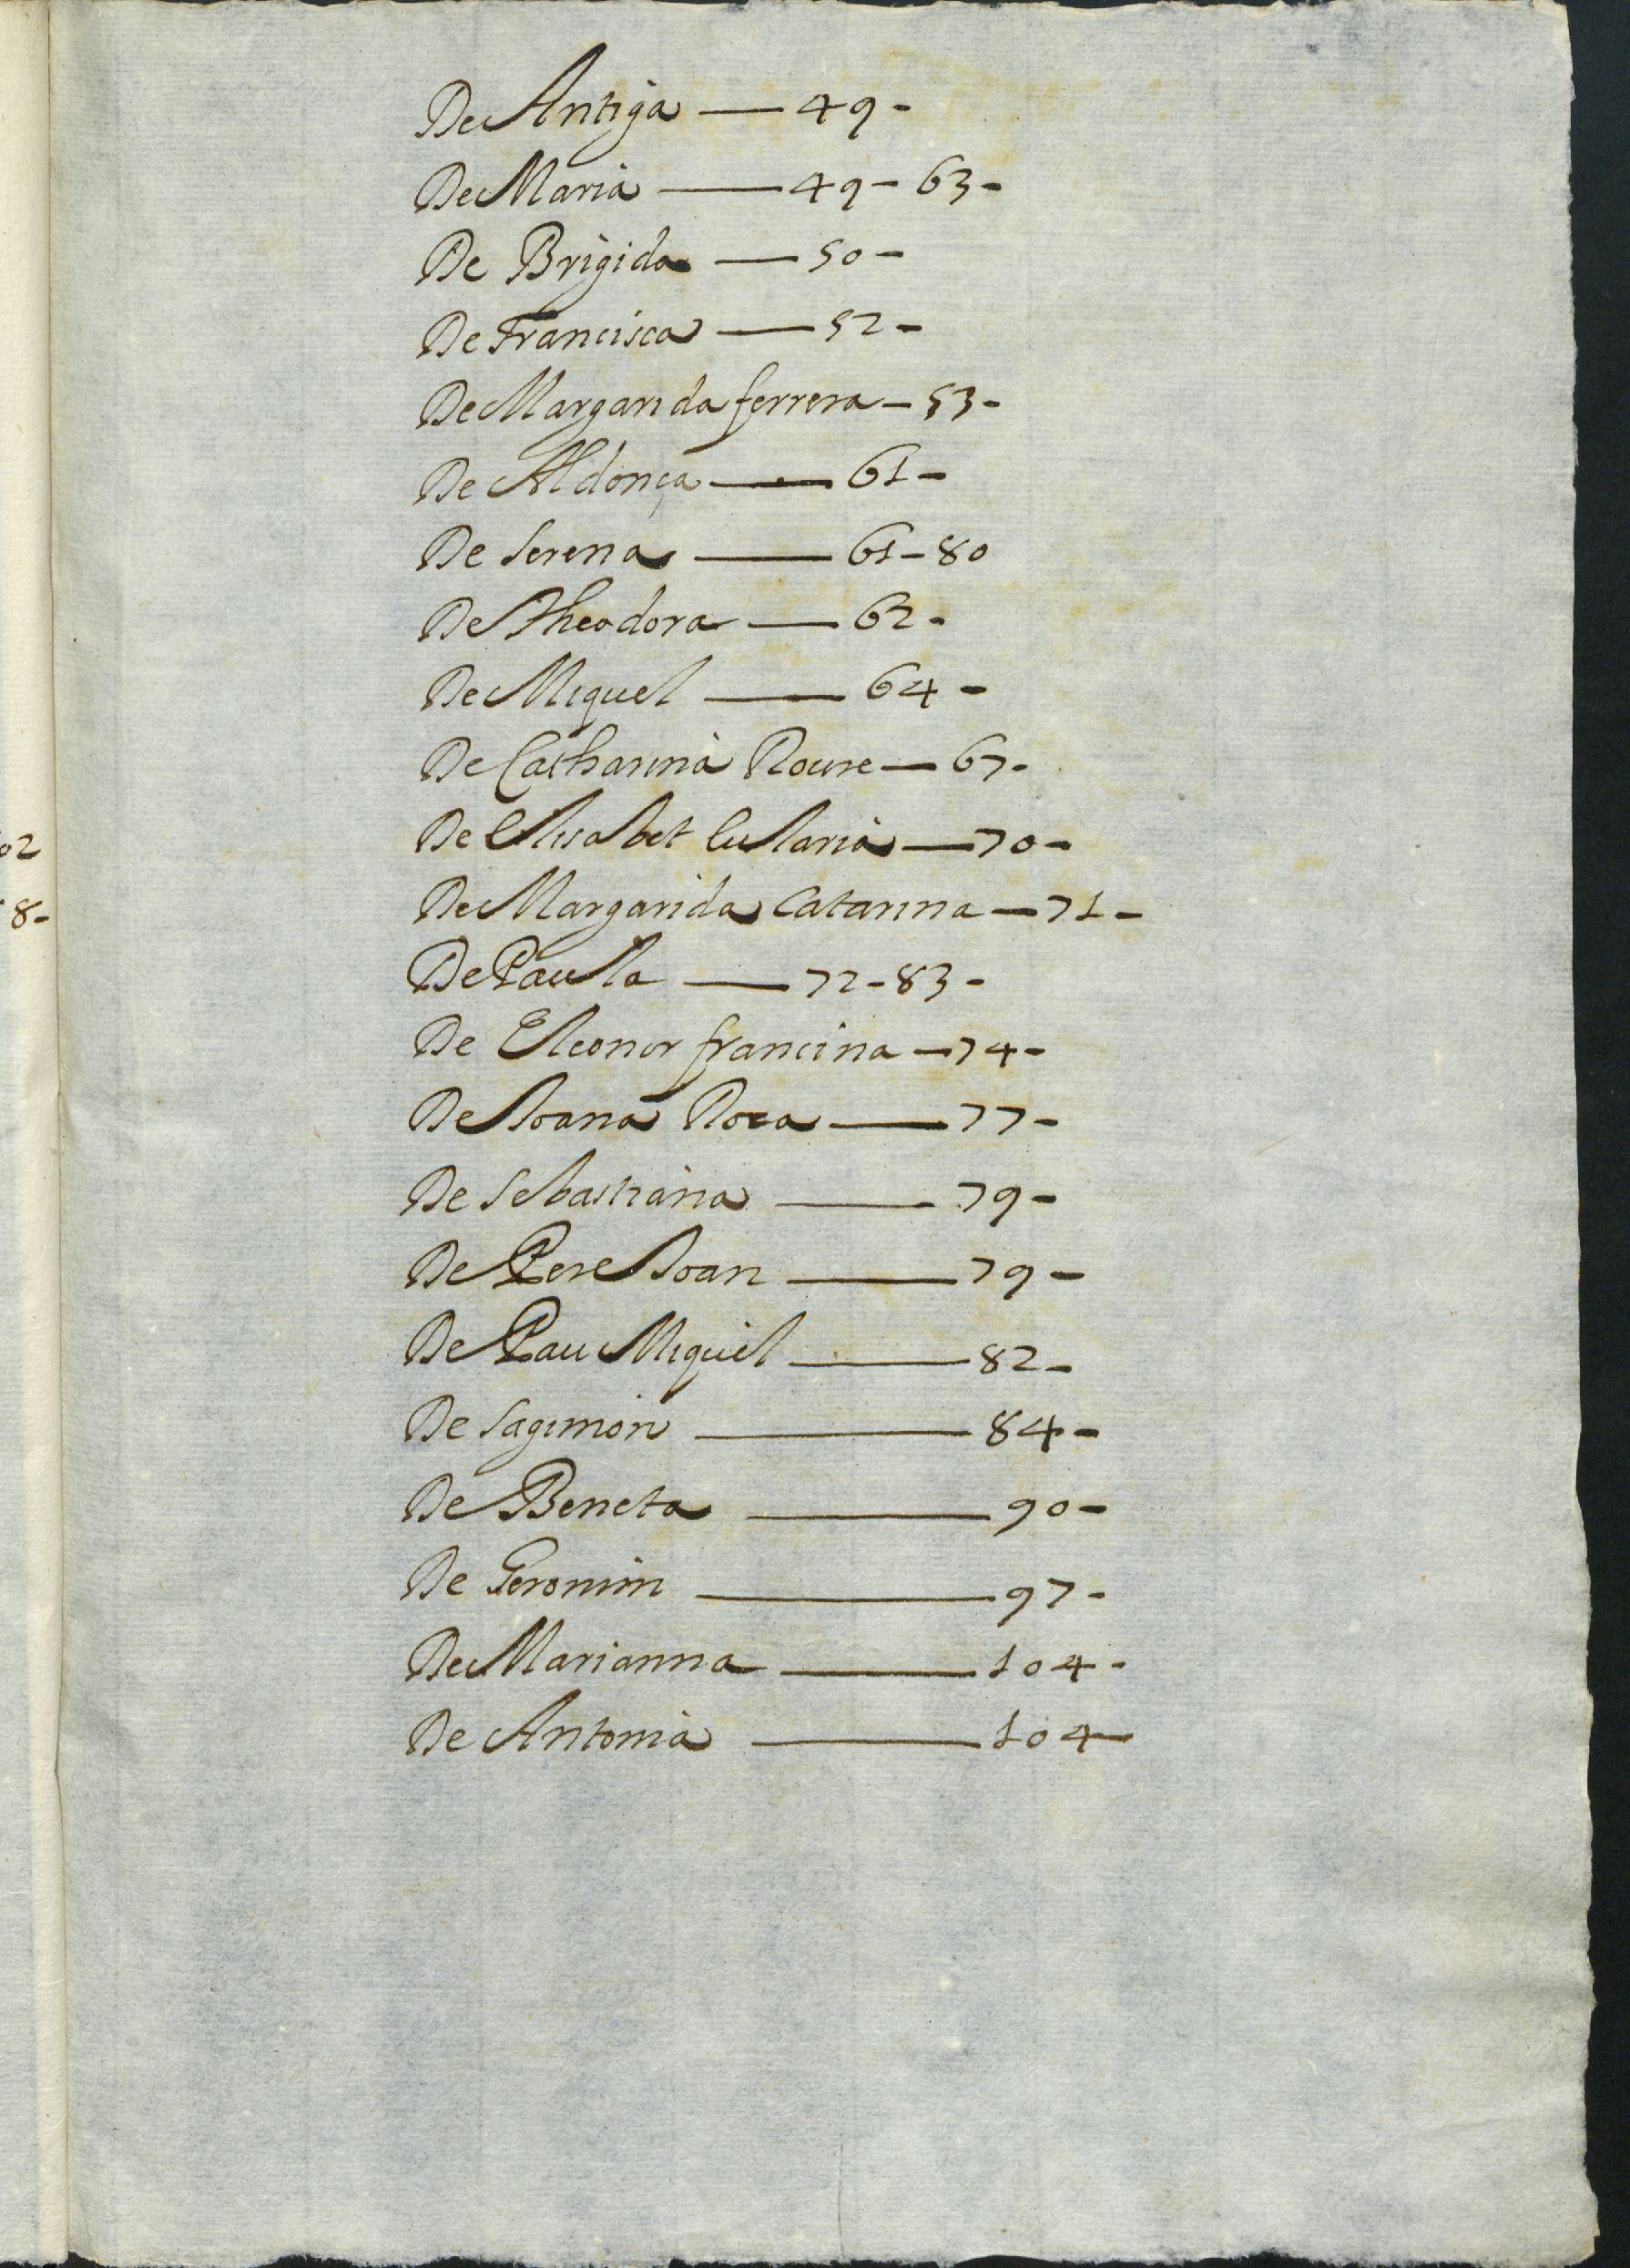 De Antiga — 49 -
De Maria — 49 - 63 -
De Brigida — 50 -
De Francisca — 52 -
De Margarida ferrera — 53 -
De Aldonça — 61 -
De Serena — 61 - 80
De Theodora — 62 -
De Miquel — 64 -
De Catharina Roure — 67 -
De Elisabet Eularia — 70 -
De Margarida Catarina — 71 -
De Paula — 72 - 83 -
De Eleonor francina — 74 -
De Joana Roca — 77 -
De Sebastiana — 79 -
De Pere Joan — 79 -
De Pau Miquel — 82 -
De Sagimon — 84 -
De Beneta — 90 -
De Geronim — 97 -
De Marianna — 104 -
De Antonia — 104
02
8 -